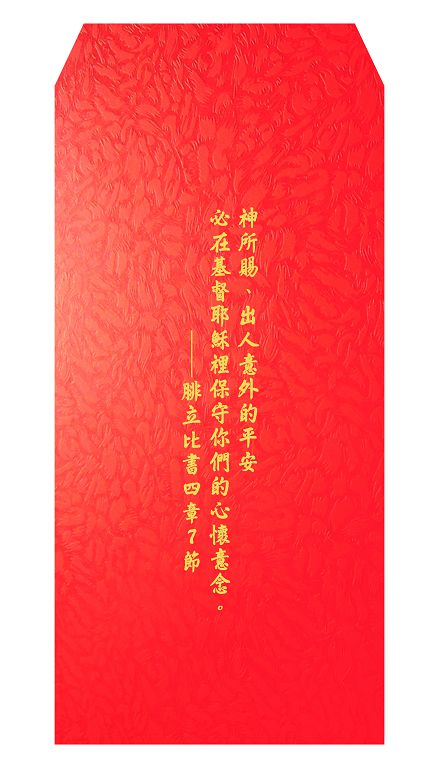 神所賜、出人意外的平安
必在基督耶穌裡保守你們的心懷意念。
——腓立比書四章7節